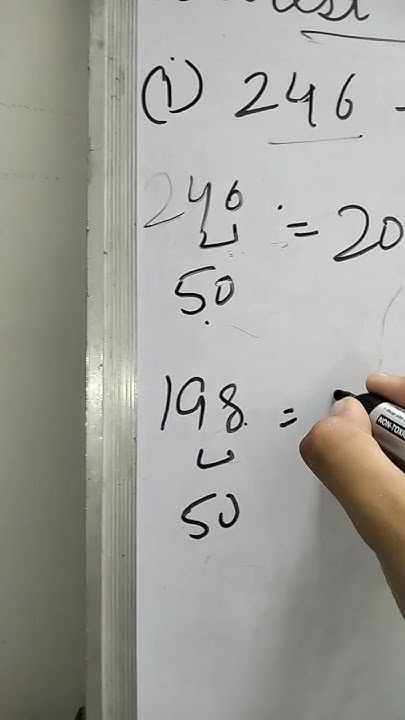 (i) 246 -
246 = 20
50
198 =
50
NON-TOXIC